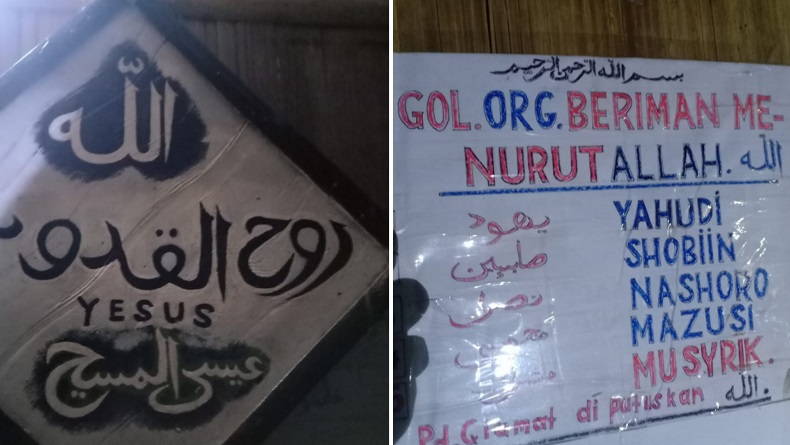 الله
روح القدو
YESUS
عيسى المسيح
بسم الله الرحمن الرحيم
GOL. ORG. BERIMAN ME-
NURUT ALLAH. الله
يهود YAHUDI
صابين SHOBIIN
NASHORO
MAZUSI
MUSYRIK.
Pd. Giamat di putuskan الله.